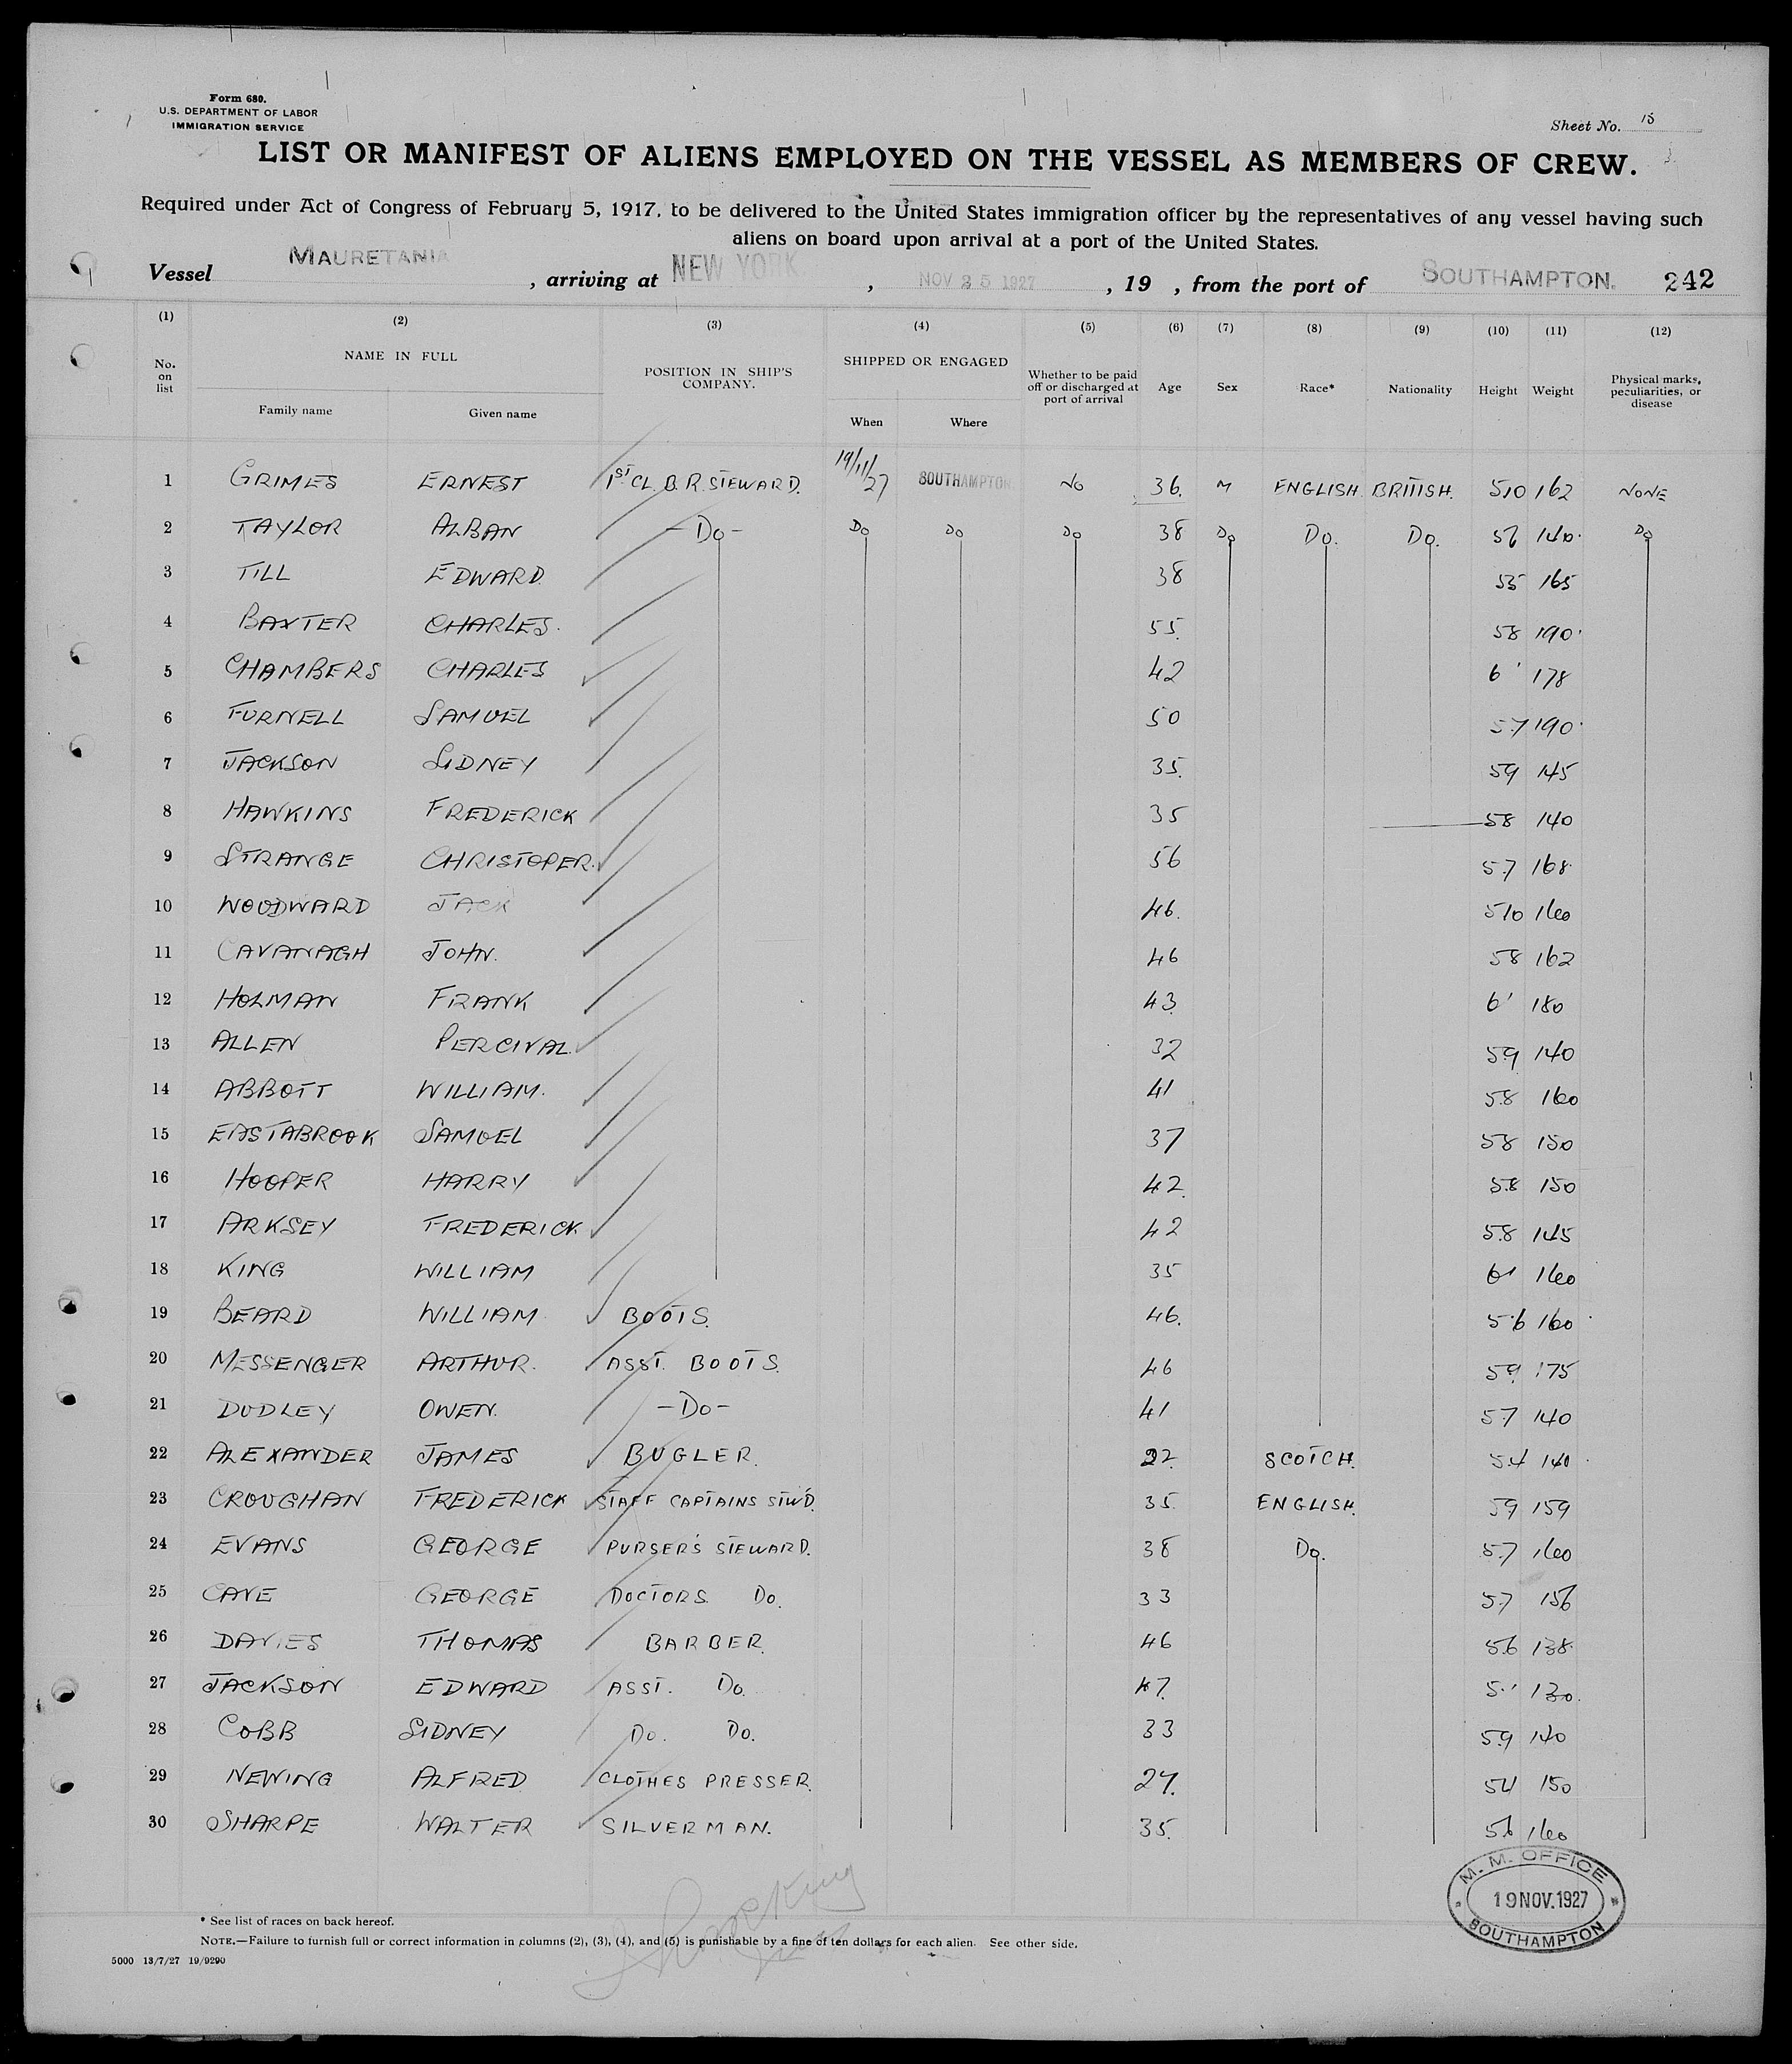 Form 680.
U.S. DEPARTMENT OF LABOR
IMMIGRATION SERVICE
Sheet No. 15
LIST OR MANIFEST OF ALIENS EMPLOYED ON THE VESSEL AS MEMBERS OF CREW.
Required under Act of Congress of February 5, 1917, to be delivered to the United States immigration officer by the representatives of any vessel having such
aliens on board upon arrival at a port of the United States.
Vessel MAURETANIA, arriving at NEW YORK, NOV 25 1927, 19 , from the port of SOUTHAMPTON. 242
(1) (2) (3) (4) (5) (6) (7) (8) (9) (10) (11) (12)
No. on list NAME IN FULL POSITION IN SHIP'S COMPANY. SHIPPED OR ENGAGED Whether to be paid off or discharged at port of arrival Age Sex Race* Nationality Height Weight Physical marks, peculiarities, or disease
Family name Given name When Where
1 GRIMES ERNEST 1ST CL. B.R. STEWARD. 19/11/27 SOUTHAMPTON. NO 36. M ENGLISH. BRITISH. 510 162 NONE
2 TAYLOR ALBAN -DO- DO DO DO 38 DO DO. DO. 56 140. DO
3 TILL EDWARD. 38 55 165
4 BAXTER CHARLES. 55. 58 190.
5 CHAMBERS CHARLES 42 6' 178
6 FURNELL SAMUEL 50 57 190.
7 JACKSON SIDNEY 35. 59 145
8 HAWKINS FREDERICK 35 58 140
9 STRANGE CHRISTOPER. 56 5.7 168.
10 WOODWARD JACK 46. 510 160
11 CAVANAGH JOHN. 46 58 162
12 HOLMAN FRANK 43. 6' 180
13 ALLEN PERCIVAL. 32 5.9 140
14 ABBOTT WILLIAM. 41 5.8 160
15 EASTABROOK SAMUEL 37 58 150
16 HOOPER HARRY 42. 5.8 150
17 ARKSEY FREDERICK. 42 5.8 145
18 KING WILLIAM 35 6' 160
19 BEARD WILLIAM BOOTS. 46. 5.6 160
20 MESSENGER ARTHUR. ASST. BOOTS. 46 59 175
21 DUDLEY OWEN. -DO- 41 57 140
22 ALEXANDER JAMES BUGLER. 22. SCOTCH. 5.4 140.
23 CROUGHAN FREDERICK STAFF CAPTAINS STW'D. 35. ENGLISH. 59 159
24 EVANS GEORGE PURSER'S STEWARD. 38 DO. 5.7 160
25 CAVE GEORGE DOCTORS DO. 33 57 156
26 DAVIES THOMAS BARBER. 46 5.6 138.
27 JACKSON EDWARD ASST. DO. 47. 130.
28 COBB SIDNEY DO. DO. 33 5.9 140
29 NEWING ALFRED CLOTHES PRESSER. 27. 54 150
30 SHARPE WALTER SILVERMAN. 35. 5.6 160
M. M. OFFICE
19 NOV. 1927
SOUTHAMPTON
* See list of races on back hereof.
NOTE.—Failure to furnish full or correct information in columns (2), (3), (4), and (5) is punishable by a fine of ten dollars for each alien. See other side.
5000 13/7/27 19/9290